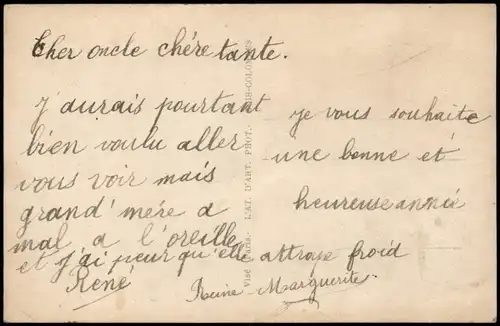 Cher oncle chére tante.
J'aurais pourtant
bien voulu aller
vous voir mais
grand'mére a
mal a l'oreille
et j'ai peur qu'elle attrape froid
René
je vous souhaite
une bonne et
heureuse année
Reine-Marguerite
Visé Paris. L'AT. D'ART. PHOT.